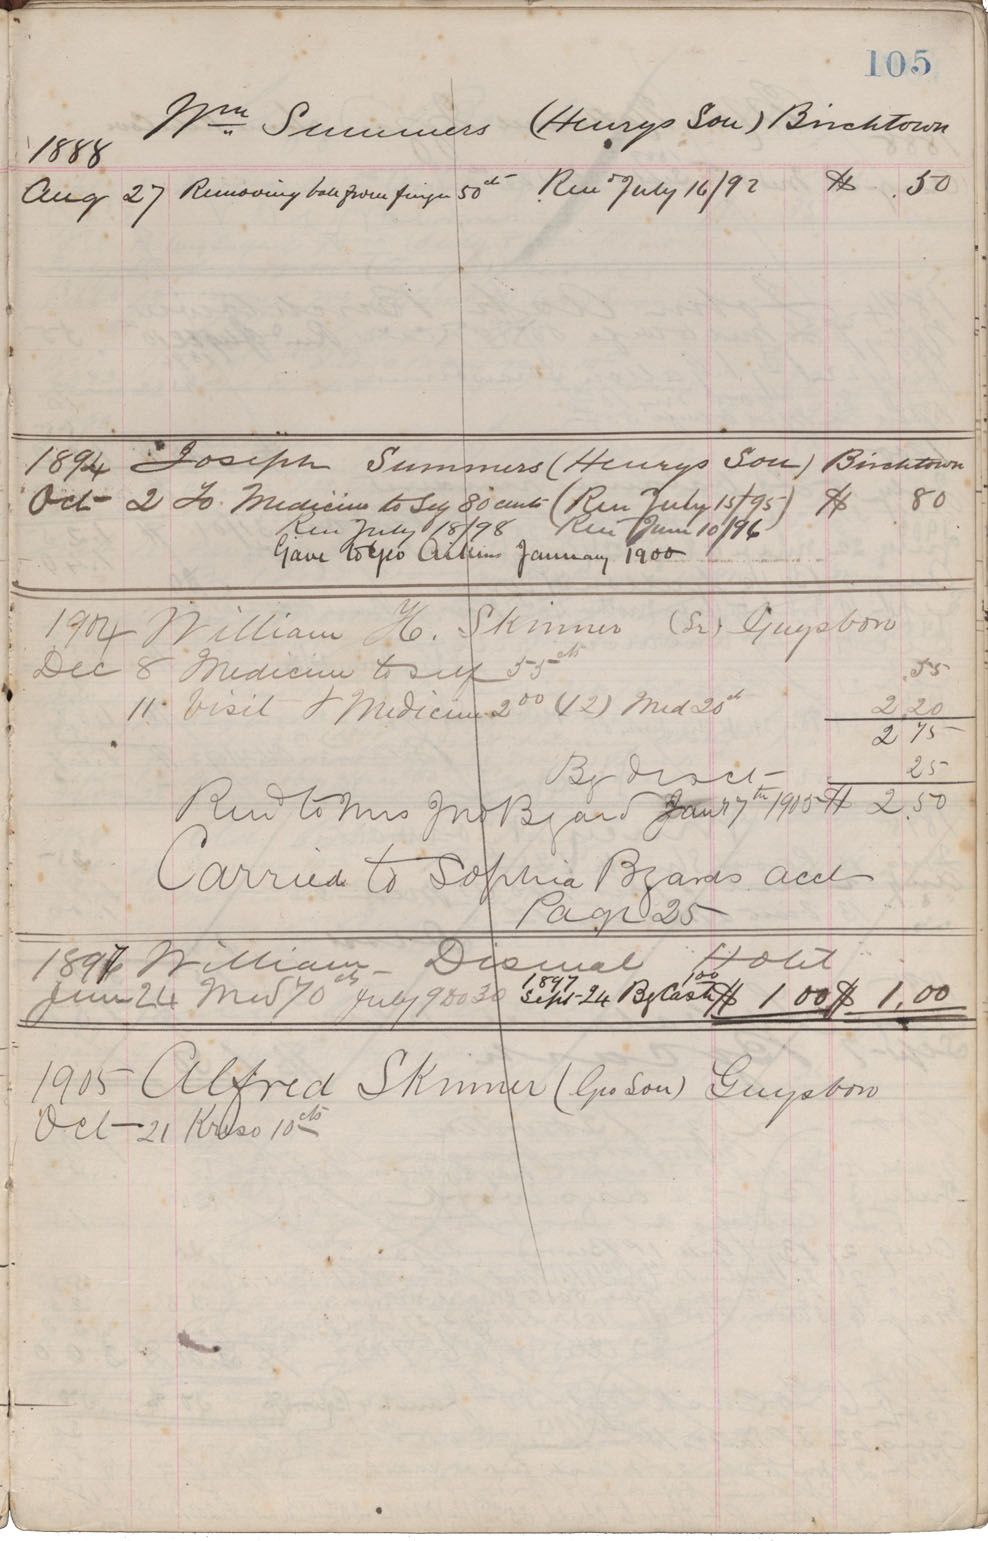 105
Wm Summers (Henrys Son) Birchtown
1888
Aug 27 Removing ball from finger 50cts Rend July 16/92 $ .50
1894 Joseph Summers (Henrys Son) Birchtown
Oct 2 To Medicine to Self 80 cents (Ren July 15/95) $ 80
Ren July 18/98 Ren June 10/96
Gave to Geo Aikins January 1900
1904 William H. Skinner (Sr) Guysboro
Dec 8 Medicine to self 55cts .55
11 Visit & Medicine 200 (12) Med 20ct 2.20
2 75
By disct 25
Rend to Mrs Jno Bzard Jany 7th 1905 $ 2.50
Carried to Sophia Bzards acct
Page 25
1897 William Dismal Hotel
June 24 Med 70cts July 9 00 30 1897 Sept 24 By Cash 100 $ 1 00 $ 1.00
1905 Alfred Skinner (Geo Son) Guysboro
Oct 21 10cts